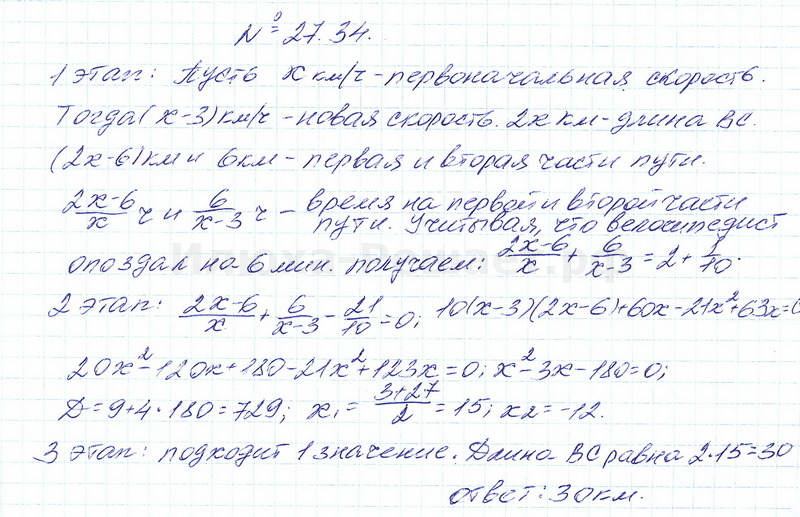 № 27.34.
1 этап: Пусть x км/ч - первоначальная скорость.
Тогда (x-3) км/ч - новая скорость. 2x км - длина BC.
(2x-6) км и 6 км - первая и вторая части пути.
(2x-6)/x ч и 6/(x-3) ч - время на первой и второй части
пути. Учитывая, что велосипедист
опоздал на 6 мин. получаем: (2x-6)/x + 6/(x-3) = 2 + 1/10.
2 этап: (2x-6)/x + 6/(x-3) - 21/10 = 0; 10(x-3)(2x-6)+60x-21x²+63x=0
20x²-120x+180-21x²+123x=0; x²-3x-180=0;
D=9+4·180=729; x₁=(3+27)/2=15; x2=-12.
3 этап: подходит 1 значение. Длина BC равна 2·15=30
ответ: 30км.